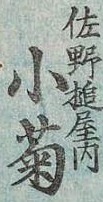 佐野槌屋内
小菊